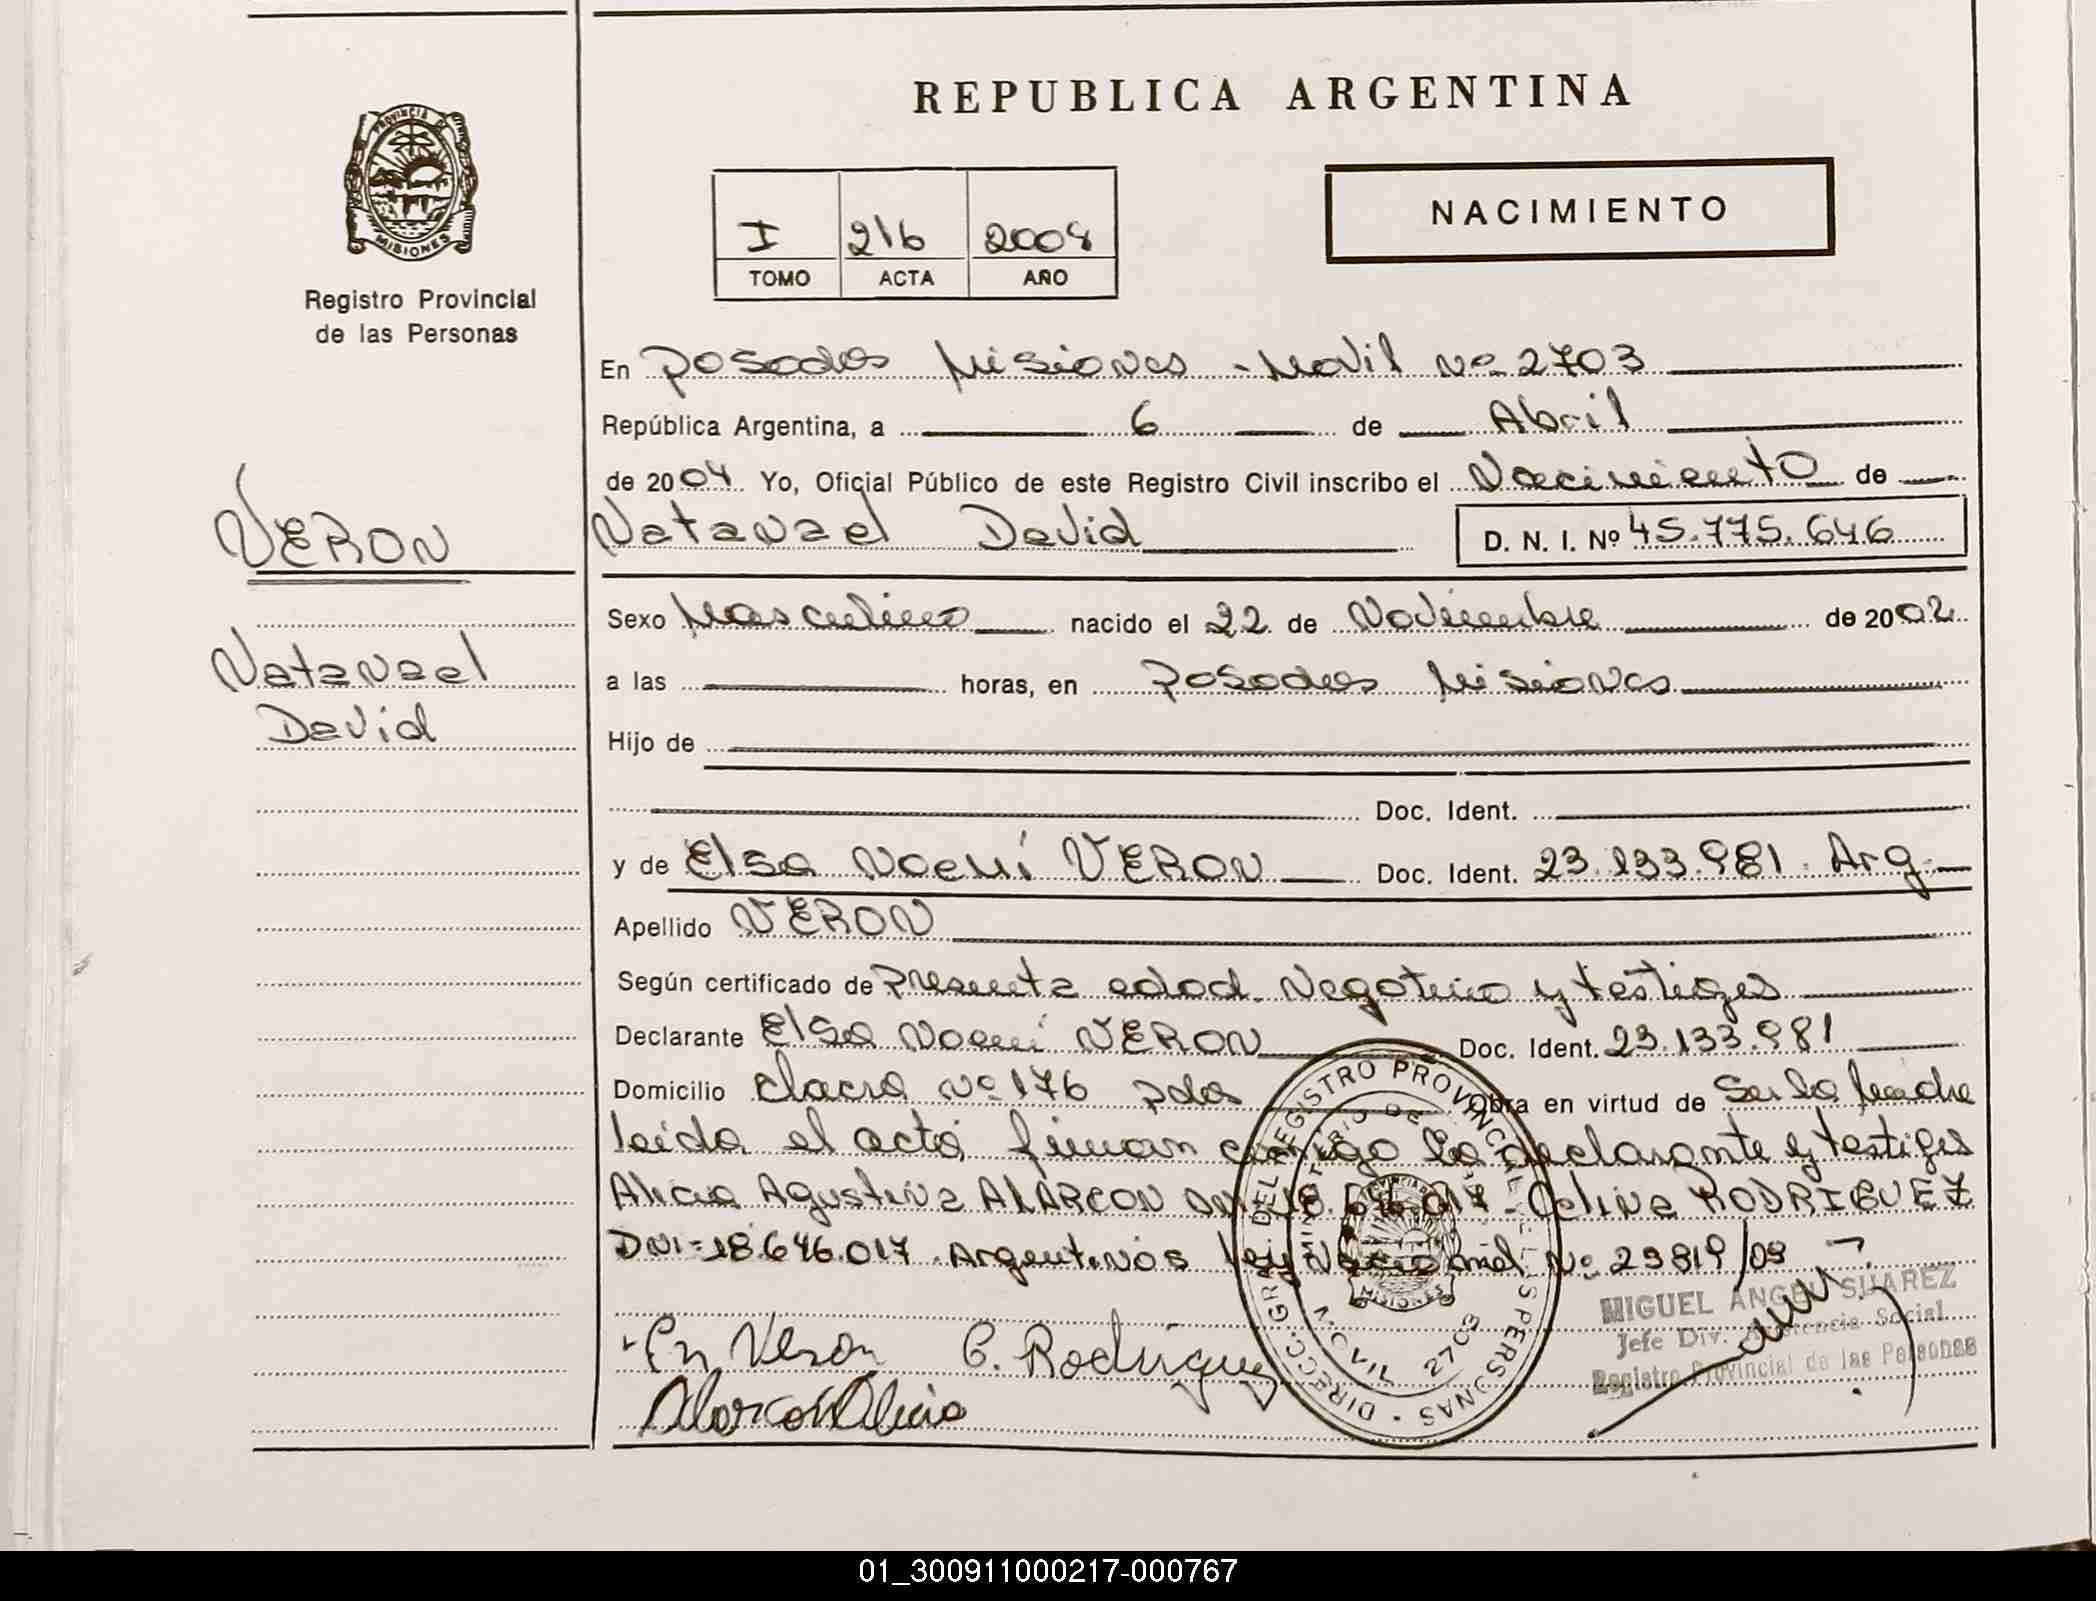 REPUBLICA ARGENTINA
PROVINCIA DE
MISIONES
Registro Provincial
de las Personas
I 216 2004
TOMO ACTA AÑO
NACIMIENTO
En Posadas Misiones - Movil Nº 2703
República Argentina, a 6 de Abril
de 2004 Yo, Oficial Público de este Registro Civil inscribo el Nacimiento de
VERON
Natanael David D. N. I. Nº 45.775.646
Sexo Masculino nacido el 22 de Noviembre de 2002
Natanael
David
a las horas, en Posadas Misiones
Hijo de
Doc. Ident.
y de Elsa Noemí VERON Doc. Ident. 23.133.981. Arg.
Apellido VERON
Según certificado de Presunta edad. Negativo y testigos
Declarante Elsa Noemí VERON Doc. Ident. 23.133.981
Domicilio Chacra Nº 176 Pdas Obra en virtud de Ser la Madre
leida el acta firman conmigo la declarante y testigos
Alicia Agustina ALARCON DNI 18. .017 - Celina RODRIGUEZ
DNI = 18.646.017. Argentinos Ley Nacional Nº 25819/03
MIGUEL ANGEL SUAREZ
Jefe Div. Asistencia Social
Registro Provincial de las Personas
En Veron C. Rodriguez
Alarcon Alicia
DIRECC. GRAL DEL REGISTRO PROVINCIAL DE LAS PERSONAS
MINISTERIO DE
MISIONES
MOVIL 2703
01_300911000217-000767